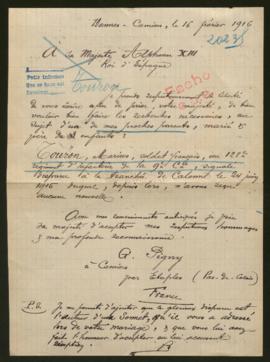 Dannes - Camiers, le 16 février 1916
2023
A Sa Majesté Alphonse XIII
Roi d'Espagne
Touron
Hecho
J'ai respectueusement la liberté
de vous écrire afin de prier, votre majesté, de
bien vouloir faire les recherches nécessaires, au
sujet d'un de mes proches parents, marié et
père de enfants:
Touron, Marius, soldat français, au
régiment d'Infanterie de la 9e Cie, signalé
disparu à la Tranchée de Calonne le 24 juin
1915 duquel, depuis lors, n'avons reçu
aucune nouvelle.
Avec mes remerciements anticipés je prie
sa majesté d'accepter mes respectueux hommages
et ma profonde reconnaissance.
Pigny
à Camiers
par Etaples (Pas-de-Calais)
France
P.S. Je me permets d'ajouter que ce glorieux disparu est
l'auteur d'un Sonnet, qu'il vous a adressé
lors de votre mariage, et que vous lui avez
fait l'honneur d'accepter en lui accusant
réception.